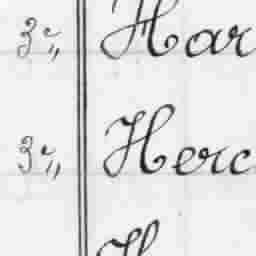 3e,, Har
3e,, Herc
H